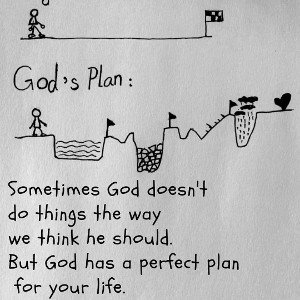 God's Plan:
Sometimes God doesn't
do things the way
we think he should.
But God has a perfect plan
for your life.